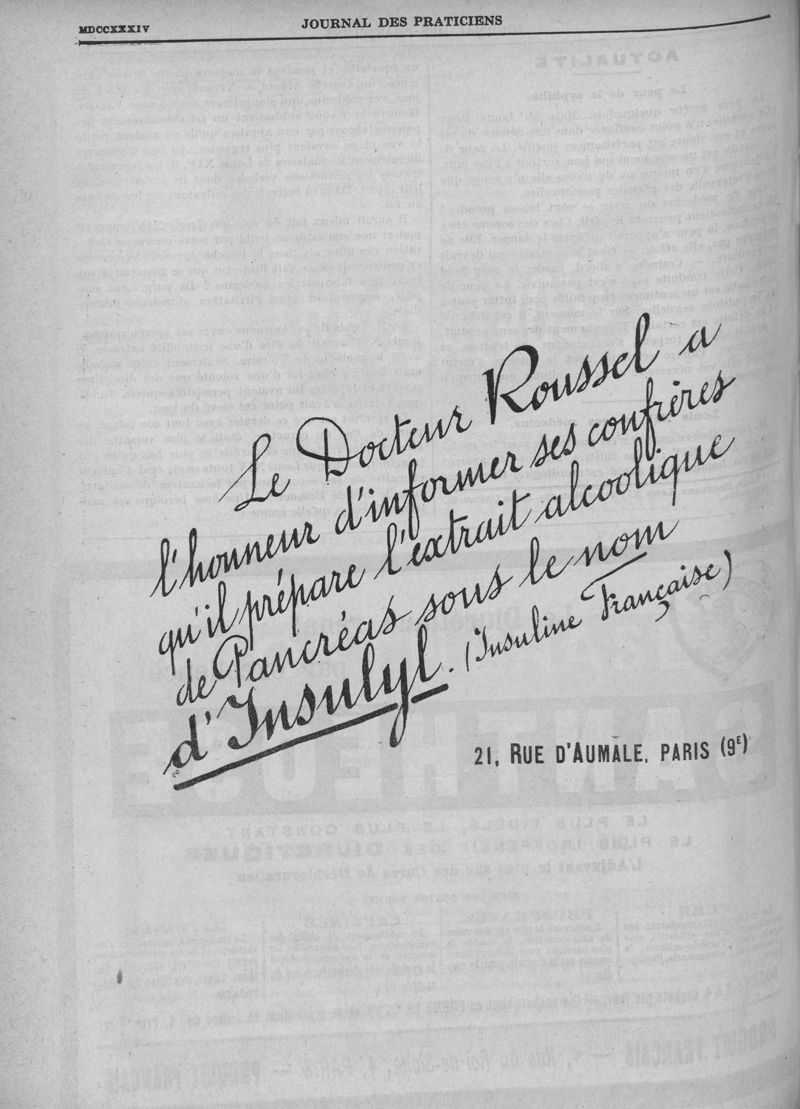 MDCCXXXIV
JOURNAL DES PRATICIENS
Le Docteur Roussel a
l'honneur d'informer ses confrères
qu'il prépare l'extrait alcoolique
de Pancréas sous le nom
d'Insulyl. (Insuline Française)
21, RUE D'AUMALE, PARIS (9E)